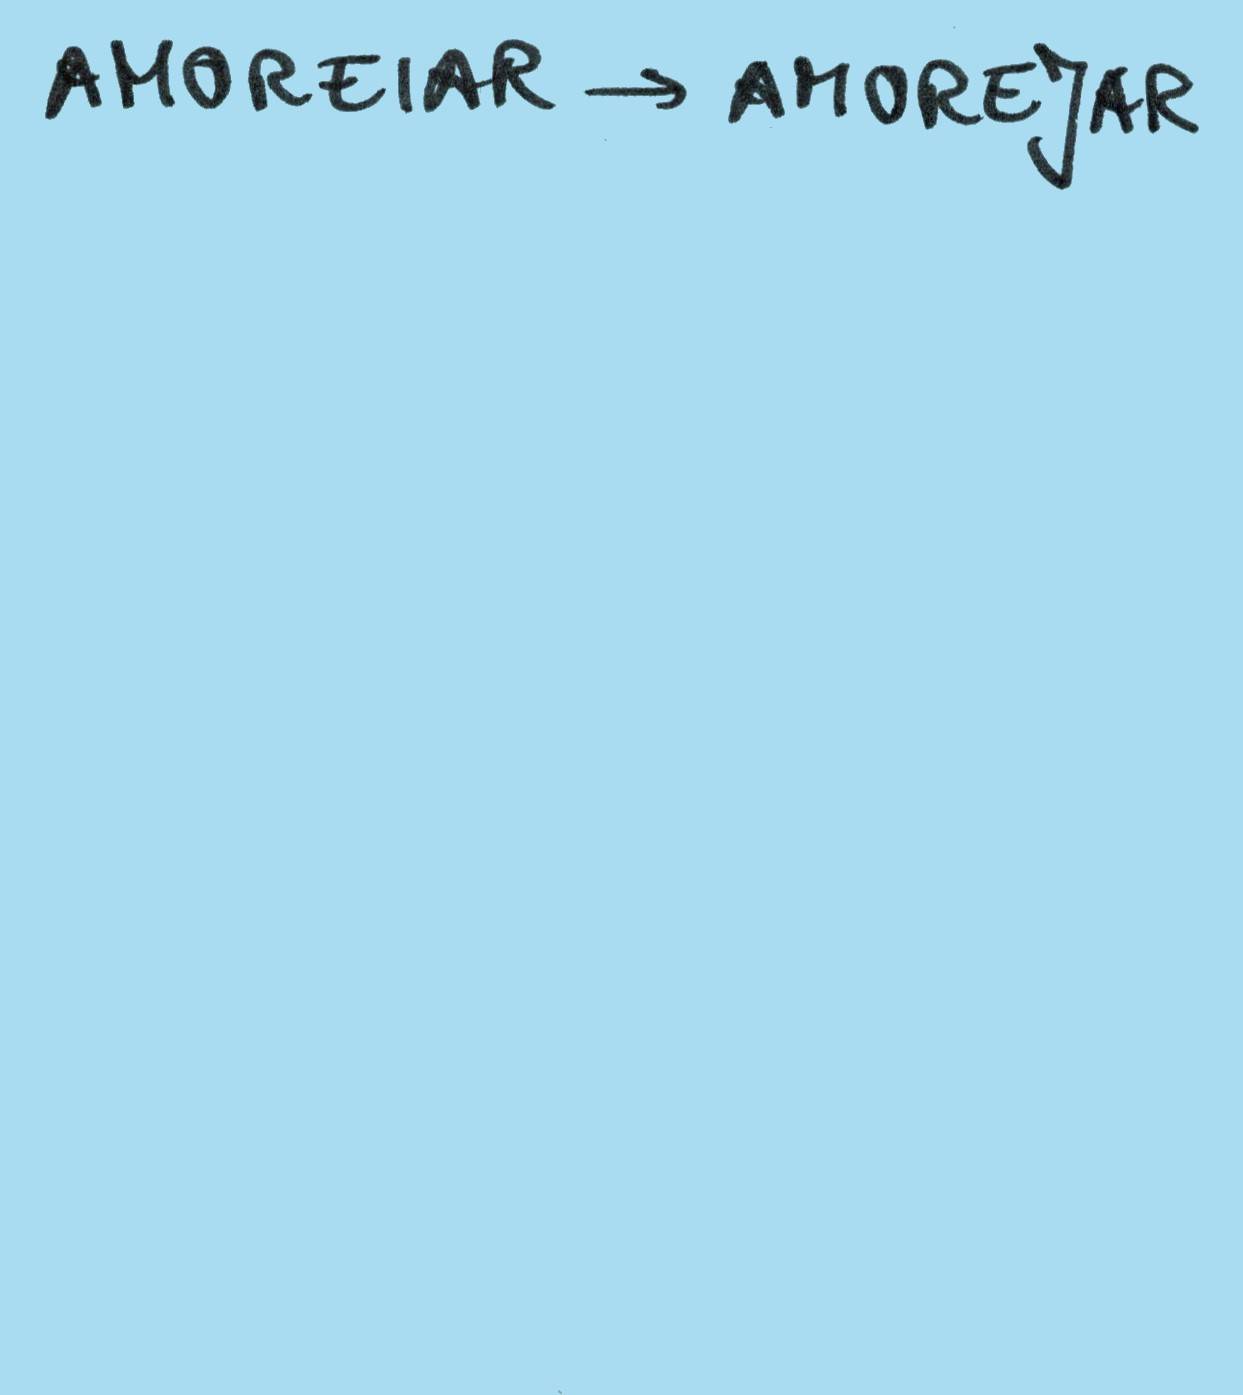 AMOREIAR → AMOREJAR